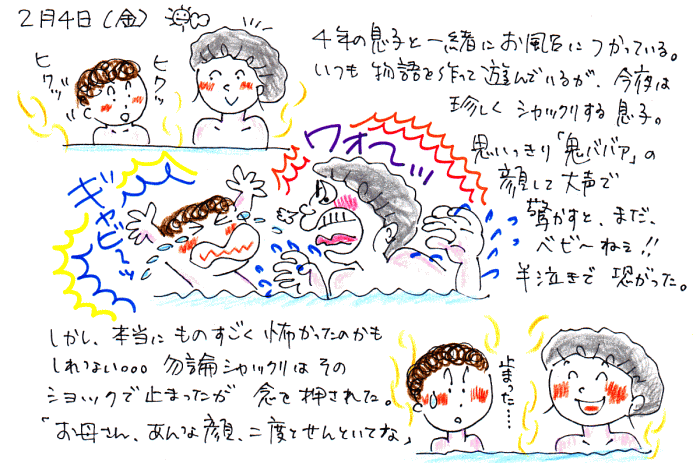 2月4日(金)
ヒクッ
ヒクッ
4年の息子と一緒にお風呂につかっている。
いつも物語を作って遊んでいるが、今夜は
珍しくシャックリする息子。
思いっきり「鬼ババア」の
顔して大声で
驚かすと、まだ、
ベビ〜ねぇ!!
半泣きで恐がった。
ワオ〜ッ
ギャビ〜ッ
しかし、本当にものすごく怖かったのかも
しれない。。。勿論シャックリはその
ショックで止まったが念を押された。
「お母さん、あんな顔、二度とせんといてな」
止まった……